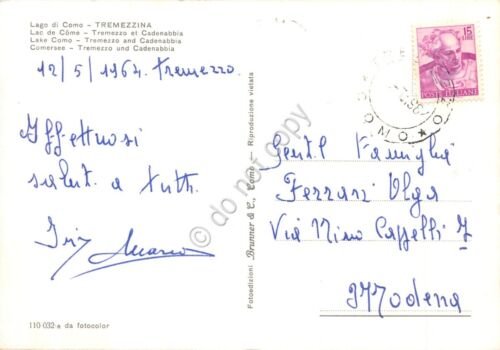 Lago di Como - TREMEZZINA
Lac de Côme - Tremezzo et Cadenabbia
Lake Como - Tremezzo and Cadenabbia
Comersee - Tremezzo und Cadenabbia
12/5/1964. Tremezzo.
Affettuosi
saluti a tutti
Iris Mario
110-032-a da fotocolor
Fotoedizioni Brunner & C., Como - Riproduzione vietata
15
LIRE
POSTE ITALIANE
COMO
Gentil Famiglia
Ferrari Olga
Via Nino Cappelli 7
Modena
© do not copy